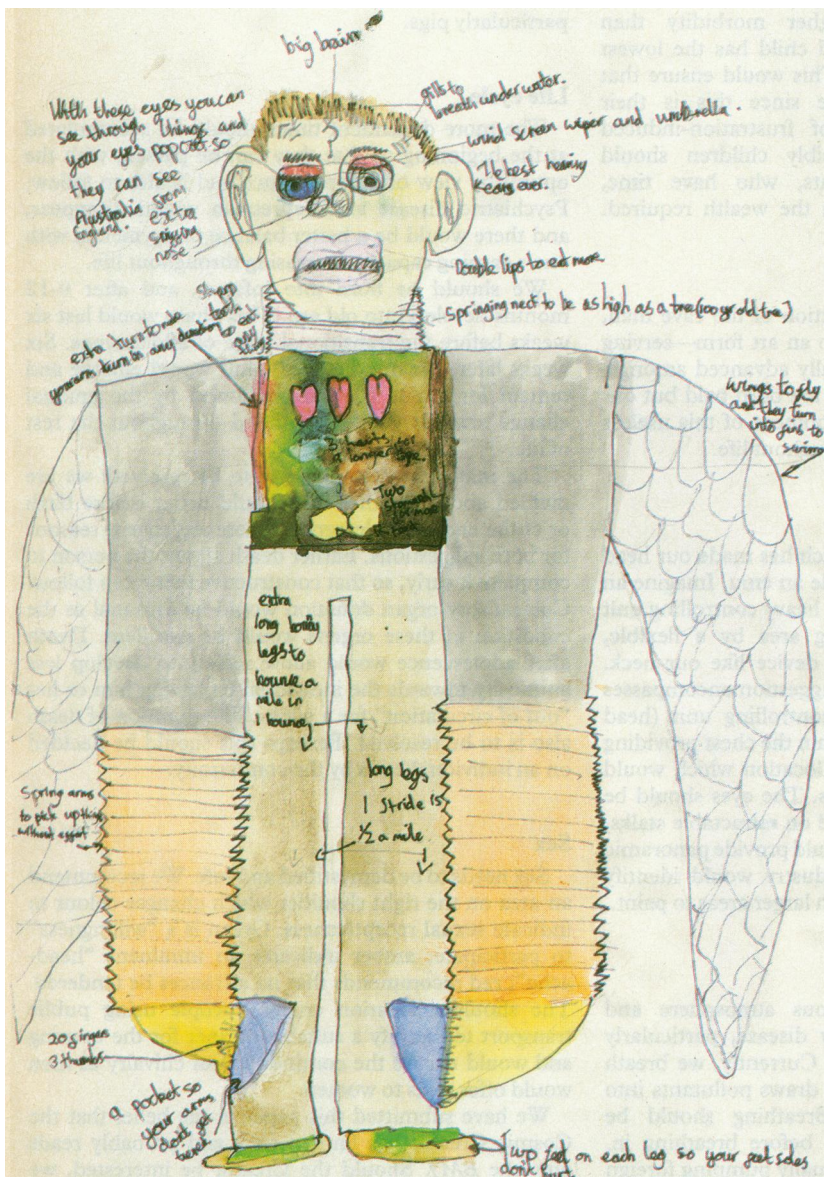 big brain
gills to
breath under water.
With these eyes you can
see through things and
your eyes pop out so
they can see
Australia from
England.
extra
nose
wind screen wiper and umbrella.
The best hearing
ears ever.
Double lips to eat more
Springing neck to be as high as a tree (100 yr old tree)
sharp
teeth
to eat
any
thing
extra turn to make
your arm turn in any direction
wings to fly
and they turn
into fins to
swim
3 hearts for
a longer life.
Two
extra
long body
legs to
bounce a
mile in
1 bounce
long legs
1 stride is
1/2 a mile
Spring arms
to pick up things
without effort
20 fingers
3 thumbs
a pocket so
your arms
dont get
tired
Two feet on each leg so your feet sides
don't hurt